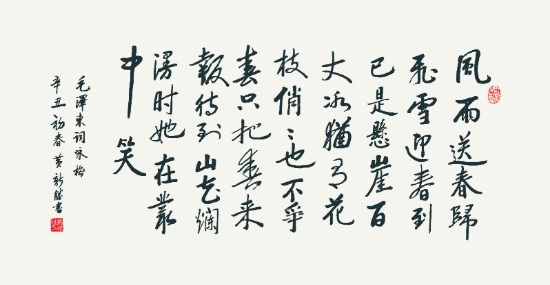 風雨送春歸
飛雪迎春到
已是懸崖百
丈冰猶有花
枝俏〻也不爭
春只把春来
報待到山花爛
漫时她在叢
中笑
毛澤東詞咏梅
辛丑初春黄新胜書